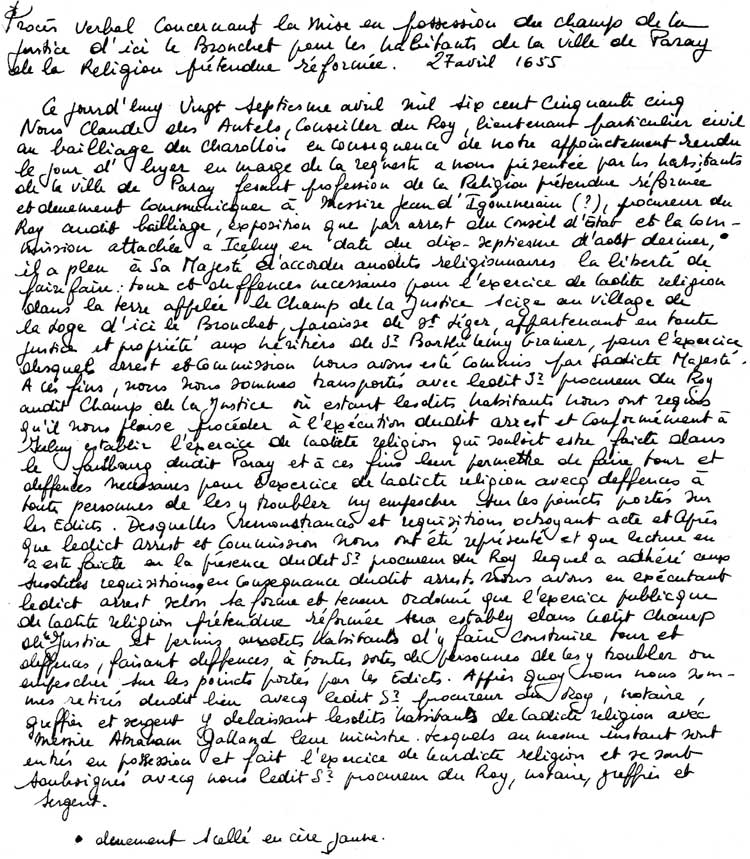 Procès verbal Concernant la mise en possession du champ de la
Justice d'ici le Bronchet pour les habitants de la ville de Paray
de la Religion prétendue réformée. 27 avril 1655
Ce jourd'huy Vingt Septiesme avril mil six cent Cinquante cinq
Nous Claude des Autels, Conseiller du Roy, lieutenant particulier civil
au bailliage du Charollois en consequence de notre appoinctement rendu
le jour d'hyer en marge de la requeste a nous présentée par les habitants
de la ville de Paray fesant profession de la Religion prétendue réformée
et deuement communicquer à Messire Jean d'Igommerain (?), procureur du
Roy audit bailliage, exposition que par arrest du Conseil d'Etat et la Com-
mission attachée a Iceluy en date du dix-septiesme d'aobt dernier, •
il a pleu à Sa Majesté d'accorder ausdits religionnaires la liberté de
faire faire : tour et deffences necessaires pour l'exercice de ladite religion
dans la terre appelée le Champ de la Justice scize au village de
la Loge d'ici le Bronchet, paroisse de St Léger, appartenant en toute
justice et propriété aux héritiers de Sr Barthélemy Gravier, pour l'exercice
desquels arrest et Commission nous avons esté Commis par Sadicte Majesté.
A ces fins, nous nous sommes transportés avec ledit Sr procureur du Roy
audit Champ de la Justice où estant lesdits habitants nous ont requis
qu'il nous plaise procéder à l'exécution dudit arrest et Conformément à
Iceluy establir l'exercice de ladite religion qui souloit estre faicte dans
le faulbourg dudit Paray et à ces fins leur permettre de faire tour et
deffences necessaires pour l'exercice de ladicte religion avecq deffences à
toute personnes de les y troubler ny empescher sur les poincts portés sur
les Edicts. Desquelles remonstrances et requisitions octroyant acte et Après
que ledict Arrest et Commission nous ont été représenté et que lecture en
a esté faicte en la présence dudit Sr procureur du Roy lequel a adhéré aux
susdites requisitions, en Conseqnance dudit arrest, Nous avons en exécutant
ledict arrest selon sa forme et teneur ordonné que l'exercice publicque
de ladite religion prétendue réformée sera estably dans ledit Champ
de Justice et permis ausdits habitants d'y faire construire tour et
deffences, faisant deffences, à toutes sortes de personnes de les y troubler ou
empescher sur les poincts portes par les Edicts. Apprès quoy nous nous som-
mes retirés dudit lieu avecq ledit Sr procureur du Roy, notaire,
greffier et sergent y delaissant lesdits habitants de ladicte religion avec
Messire Abraham Galland leur ministre. Lesquels au mesme instant sont
entrés en possession et fait l'exercice de leurdicte religion et se sont
soubsignés avecq nous ledit Sr procureur du Roy, notaire, greffier et
Sergent.
• deuement scellé en cire jaune.